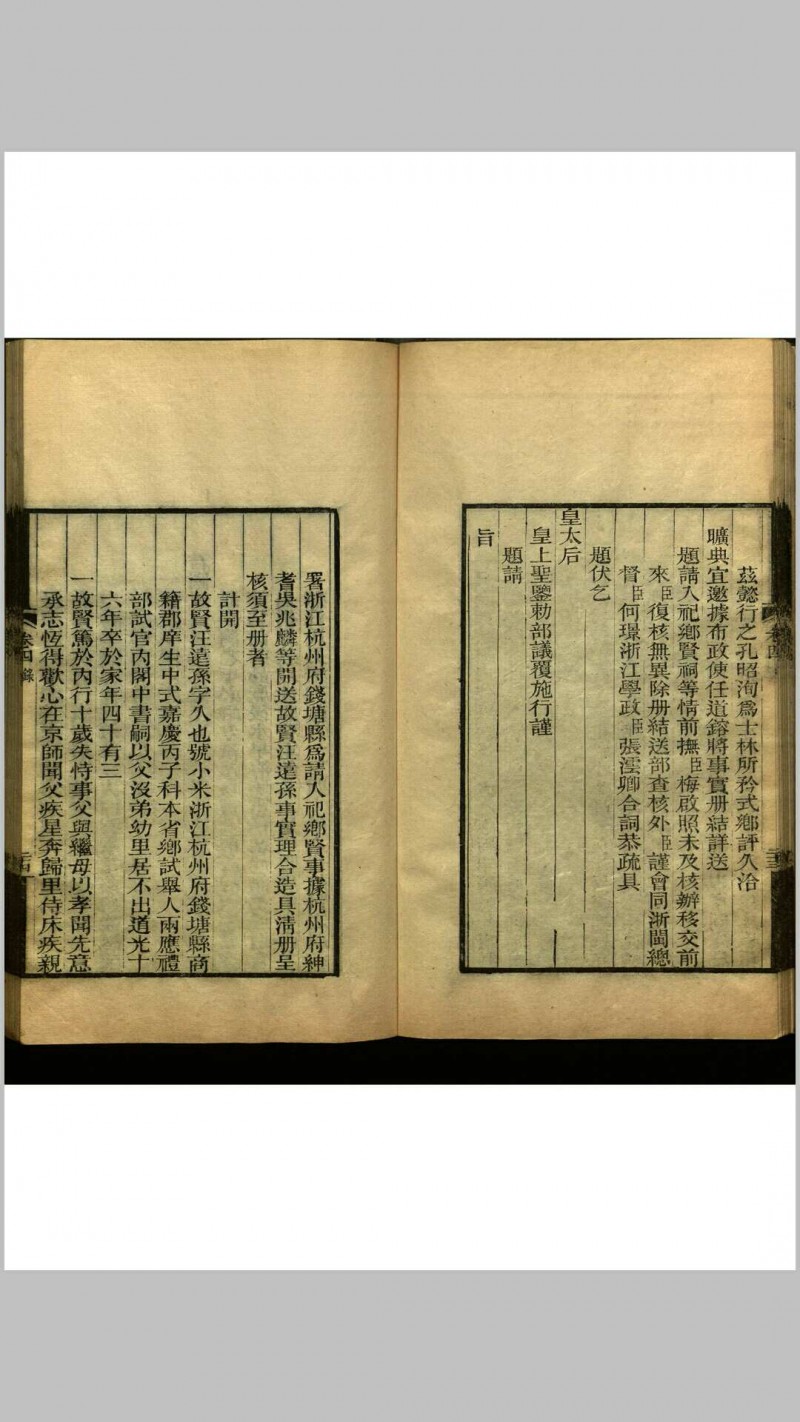 茲懿行之孔昭洵爲士林所矜式鄉評久洽
曠典宜邀據布政使任道鎔將事實册結詳送
題請入祀鄉賢祠等情前撫臣梅啟照未及核辦移交前
來臣復核無異除册結送部查核外臣謹會同浙閩總
督臣何璟浙江學政臣張澐卿合詞恭疏具
題伏乞
皇太后
皇上聖鑒勅部議覆施行謹
題請
旨
署浙江杭州府錢塘縣爲請入祀鄉賢事據杭州府紳
耆吳兆麟等開送故賢汪遠孫事實理合造具淸册呈
核須至册者
計開
一故賢汪遠孫字久也號小米浙江杭州府錢塘縣商
籍郡庠生中式嘉慶丙子科本省鄉試舉人兩應禮
部試官內閣中書嗣以父沒弟幼里居不出道光十
六年卒於家年四十有三
一故賢篤於內行十歲失恃事父與繼母以孝聞先意
承志恆得歡心在京師聞父疾星奔歸里侍床疾親
卷四 錄